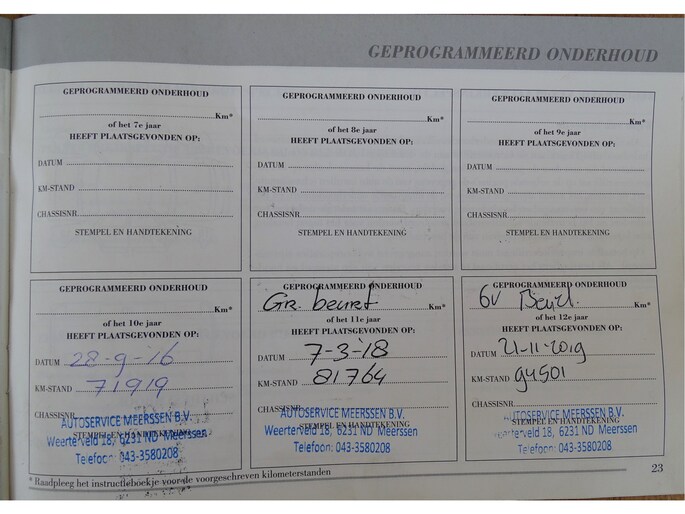 GEPROGRAMMEERD ONDERHOUD
GEPROGRAMMEERD ONDERHOUD
Km*
of het 7e jaar
HEEFT PLAATSGEVONDEN OP:
DATUM
KM-STAND
CHASSISNR.
STEMPEL EN HANDTEKENING
GEPROGRAMMEERD ONDERHOUD
Km*
of het 8e jaar
HEEFT PLAATSGEVONDEN OP:
DATUM
KM-STAND
CHASSISNR.
STEMPEL EN HANDTEKENING
GEPROGRAMMEERD ONDERHOUD
Km*
of het 9e jaar
HEEFT PLAATSGEVONDEN OP:
DATUM
KM-STAND
CHASSISNR.
STEMPEL EN HANDTEKENING
GEPROGRAMMEERD ONDERHOUD
Km*
of het 10e jaar
HEEFT PLAATSGEVONDEN OP:
DATUM 28-9-16
KM-STAND 71919
CHASSISNR.
AUTOSERVICE MEERSSEN B.V.
STEMPEL EN HANDTEKENING
Weerterveld 18, 6231 ND Meerssen
Telefoon: 043-3580208
GEPROGRAMMEERD ONDERHOUD
Gr. beurt Km*
of het 11e jaar
HEEFT PLAATSGEVONDEN OP:
DATUM 7-3-18
KM-STAND 81764
CHASSISNR.
AUTOSERVICE MEERSSEN B.V.
STEMPEL EN HANDTEKENING
Weerterveld 18, 6231 ND Meerssen
Telefoon: 043-3580208
GEPROGRAMMEERD ONDERHOUD
Beurt. Km*
of het 12e jaar
HEEFT PLAATSGEVONDEN OP:
DATUM 21-11-2019
KM-STAND 94501
CHASSISNR.
AUTOSERVICE MEERSSEN B.V.
STEMPEL EN HANDTEKENING
Weerterveld 18, 6231 ND Meerssen
Telefoon: 043-3580208
* Raadpleeg het instructieboekje voor de voorgeschreven kilometerstanden
23